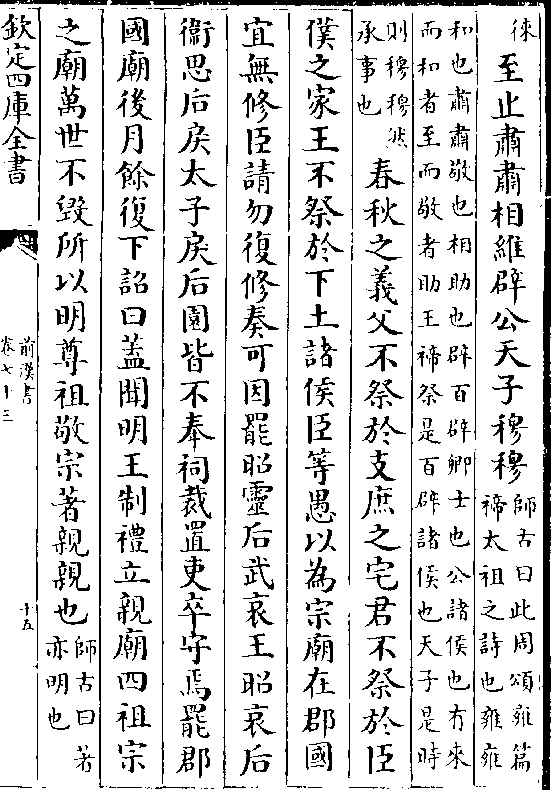 徠至止肅肅相維辟公天子穆穆師古曰此周頌雍篇禘太祖之詩也雍雍
和也肅肅敬也相助也辟百辟卿士也公諸侯也有來而和者至而敬者助王禘祭是百辟諸侯也天子是時
則穆穆然承事也春秋之義父不祭於支庶之宅君不祭於臣
僕之家王不祭於下土諸侯臣等愚以為宗廟在郡國
宜無修臣請勿復修奏可因罷昭靈后武哀王昭哀后
衞思后戾太子戾后園皆不奉祠裁置吏卒守焉罷郡
國廟後月餘復下詔曰蓋聞明王制禮立親廟四祖宗
之廟萬世不毀所以明尊祖敬宗著親親也師古曰著亦明也
欽定四庫全書
前漢書
卷七十三
十五